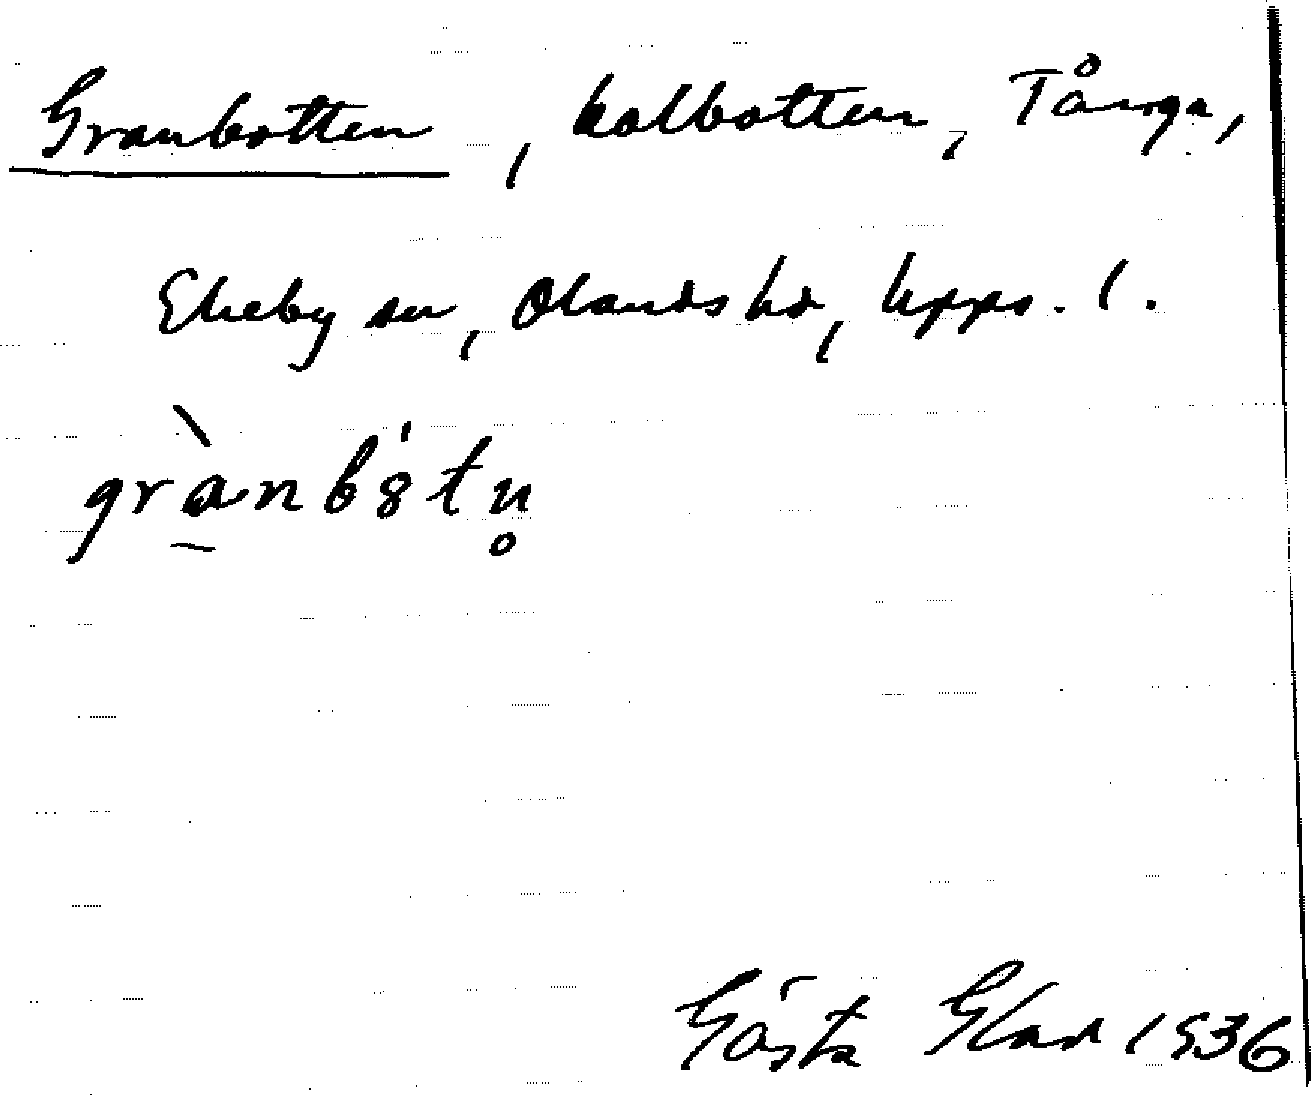 Granbotten, kolbotten, Tånga,
Ekeby sn, Olands hd, Upps. l.
grànbo̍tn̥
Gösta Glad 1936